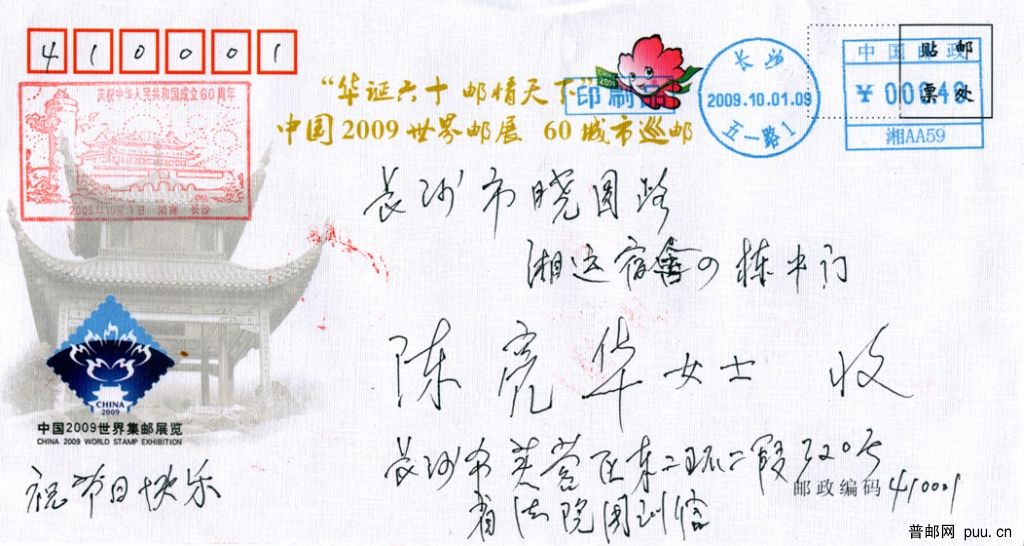 410001
庆祝中华人民共和国成立60周年
2009年10月1日 湖南 长沙
“华证六十 邮情天下”
中国2009世界邮展 60城市巡邮
印刷品
长沙
2009.10.01.09
五一路1
中国邮政
¥00040
湘AA59
贴邮
票处
长沙市晓园路
湘运宿舍4栋中门
陈亮华女士 收
CHINA
2009
中国2009世界集邮展览
CHINA 2009 WORLD STAMP EXHIBITION
祝节日快乐
长沙市芙蓉区东二环二段320号
省法院周
邮政编码410001
普邮网 puu.cn